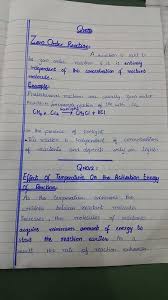 Q no 1
Zero Order Reaction:
A reaction is said to
be zero order reaction if it is entirely
independent of the concentration of reactant
molecule.
Example:
Photochemical reactions are usually zero order
of CH4 with Cl2
CH4 + Cl2 → CH3Cl + HCl
in the presence of sunlight.
This reaction is independent of concentration
of reactants and depends only on light.
Q no 2:
Effect of Temperature On the Activation Energy
of Reaction:
As the temperature increases the
collision between reactant molecule
increases, the molecules of reactants
acquire minimum amount of energy to
start the reaction earlier. As a
result the rate of reaction enhanced